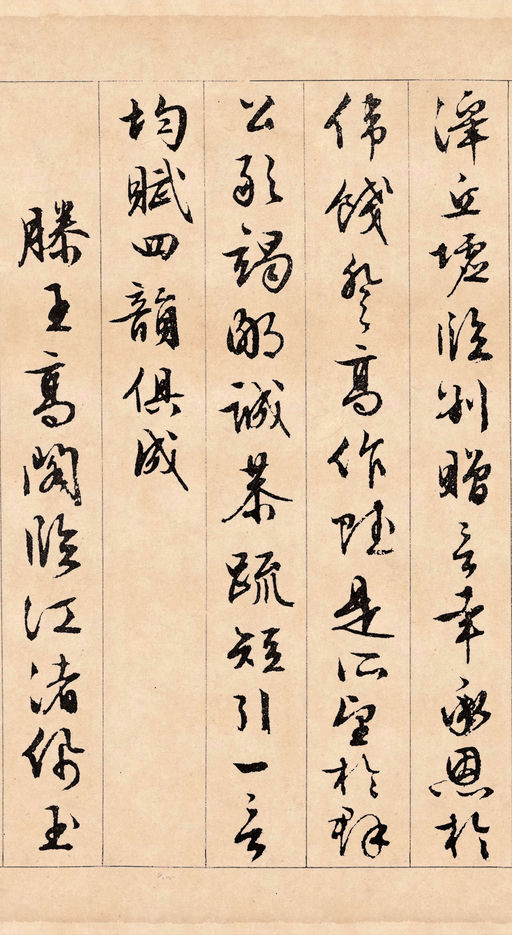 澤丘墟臨別贈言幸承恩於
偉餞登高作賦是所望於群
公敢竭鄙誠恭疏短引一言
均賦四韻俱成
滕王高閣臨江渚佩玉